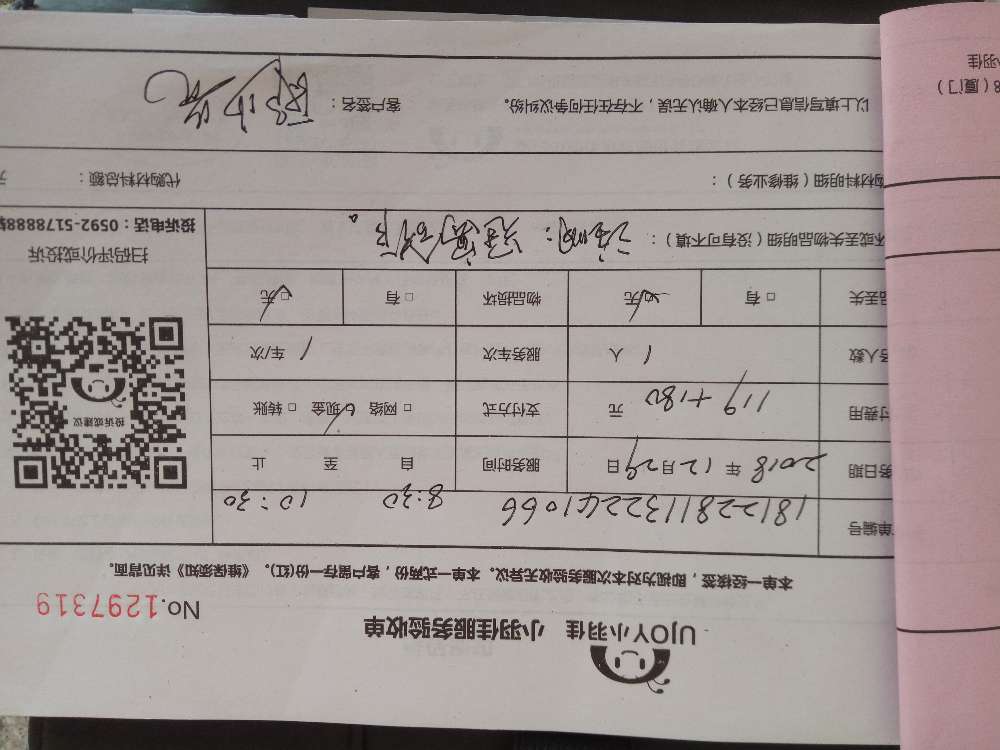 UJOY小羽佳 小羽佳服务验收单
No.1297319
本单一经签核,即视为对本次服务验收无异议。本单一式两份,客户留存一份(红)。《维保须知》详见背面。
单编号 18122811322461066
务日期 2018 年 12 月 29 日 服务时间 自 8:30 至 10:30 止
付费用 119+180 元 支付方式 □ 网络 □ 现金 □ 转账
务人数 1 人 服务车次 1 车/次
品丢失 □ 有 □ 无 物品损坏 □ 有 □ 无
坏或丢失物品明细(没有可不填):
投诉或建议
扫码评价或投诉
投诉电话:0592-5178888转
购材料明细(维修业务): 代购材料总额: 元
以上填写信息已经本人确认无误,不存在任何争议纠纷。 客户签名:
8(厦门)
小羽佳